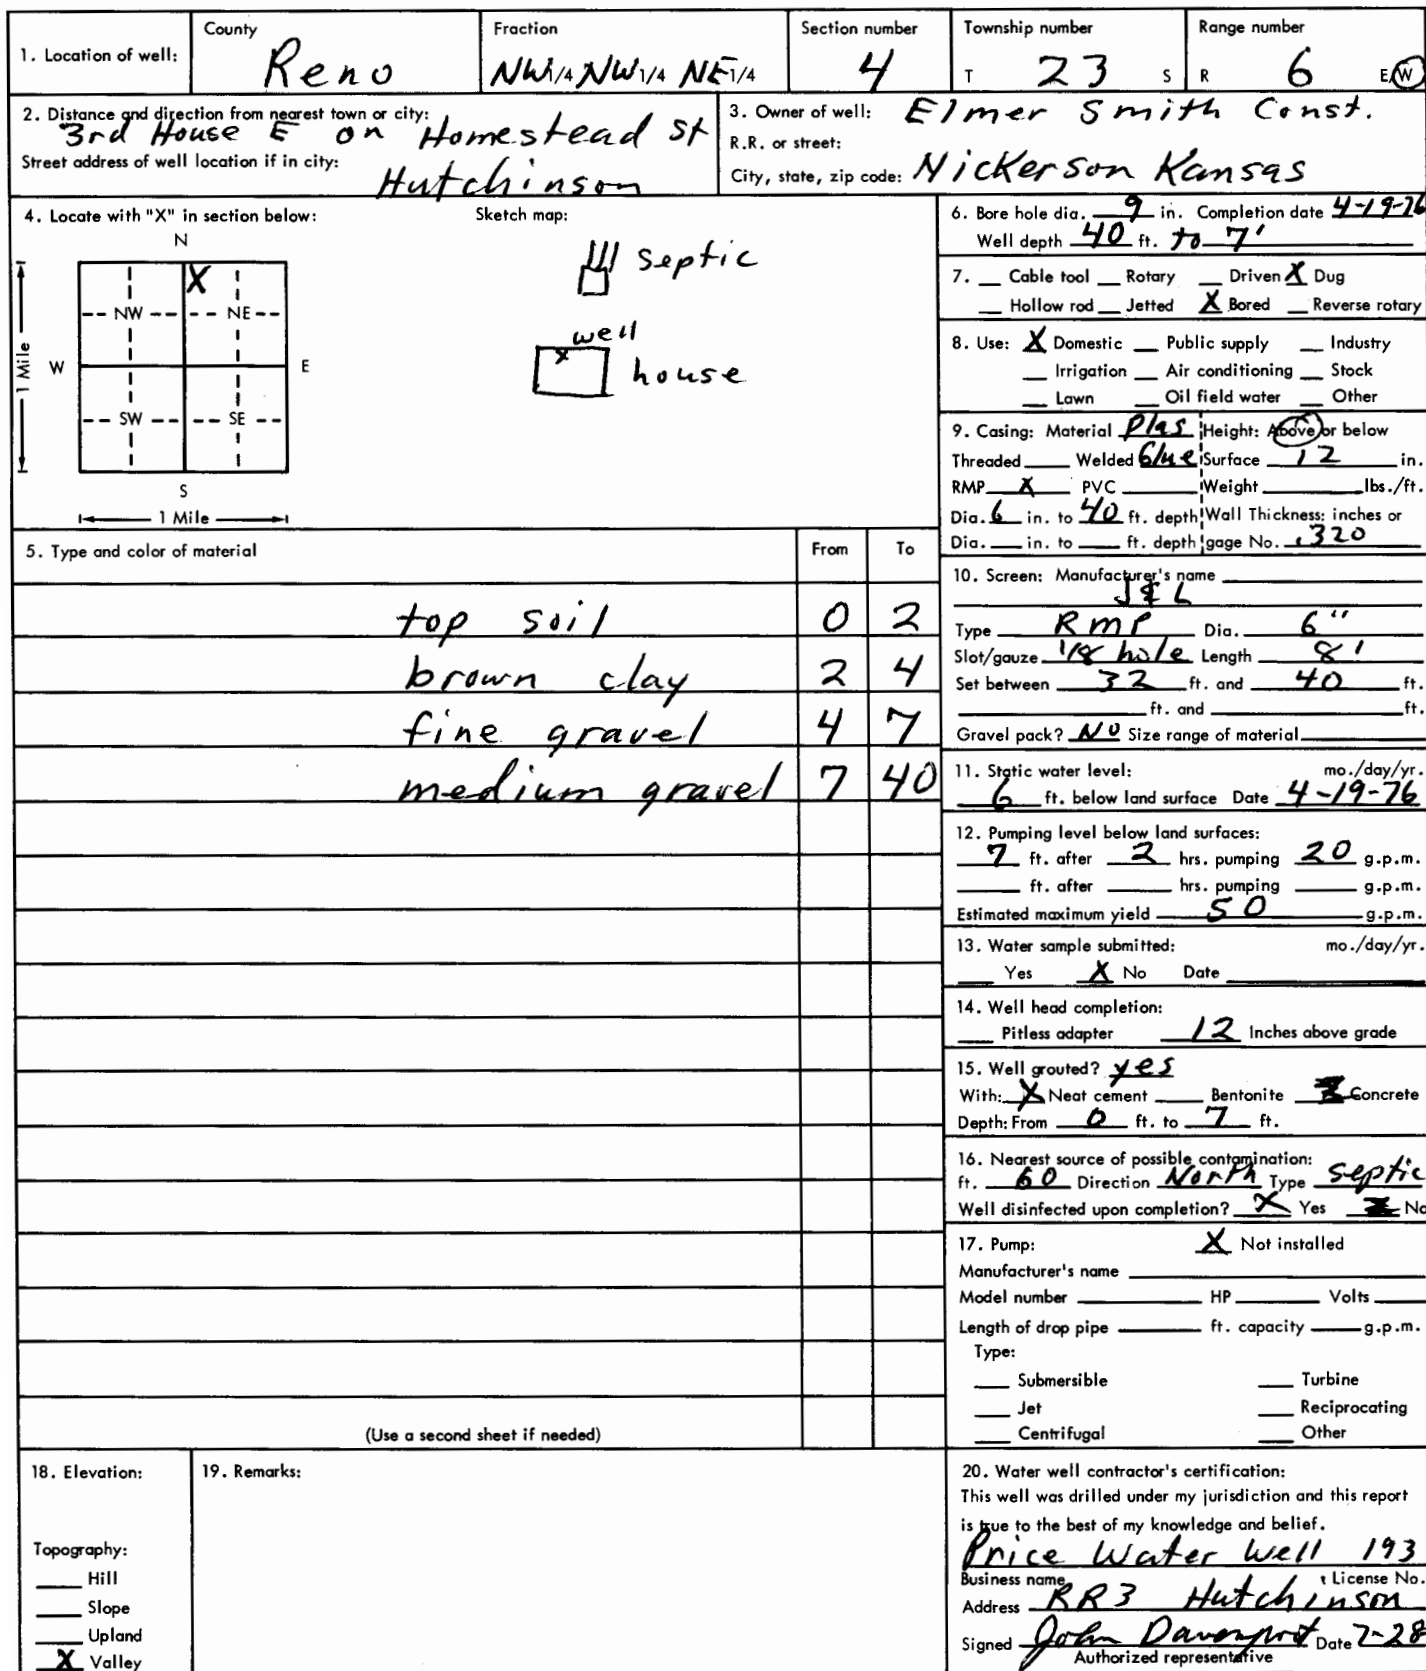 1. Location of well: County Reno Fraction NW 1/4 NW 1/4 NE 1/4 Section number 4 Township number T 23 S Range number R 6 E/W
2. Distance and direction from nearest town or city: 3rd House E on Homestead St
Street address of well location if in city: Hutchinson
3. Owner of well: Elmer Smith Const.
R.R. or street:
City, state, zip code: Nickerson Kansas
4. Locate with "X" in section below:
N
X
NW NE
W E
SW SE
S
1 Mile
1 Mile
Sketch map:
septic
well
x
house
5. Type and color of material From To
top soil 0 2
brown clay 2 4
fine gravel 4 7
medium gravel 7 40
(Use a second sheet if needed)
6. Bore hole dia. 9 in. Completion date 4-19-76
Well depth 40 ft. to 7'
7. Cable tool Rotary Driven X Dug
Hollow rod Jetted X Bored Reverse rotary
8. Use: X Domestic Public supply Industry
Irrigation Air conditioning Stock
Lawn Oil field water Other
9. Casing: Material Plas Height: Above or below
Threaded Welded Glue Surface 12 in.
RMP X PVC Weight lbs./ft.
Dia. 6 in. to 40 ft. depth Wall Thickness: inches or
Dia. in. to ft. depth gage No. .320
10. Screen: Manufacturer's name
J & L
Type RMP Dia. 6"
Slot/gauze 1/8 hole Length 8'
Set between 32 ft. and 40 ft.
ft. and ft.
Gravel pack? NO Size range of material
11. Static water level: mo./day/yr.
6 ft. below land surface Date 4-19-76
12. Pumping level below land surfaces:
7 ft. after 2 hrs. pumping 20 g.p.m.
ft. after hrs. pumping g.p.m.
Estimated maximum yield 50 g.p.m.
13. Water sample submitted: mo./day/yr.
Yes X No Date
14. Well head completion:
Pitless adapter 12 Inches above grade
15. Well grouted? yes
With: X Neat cement Bentonite Concrete
Depth: From 0 ft. to 7 ft.
16. Nearest source of possible contamination:
ft. 60 Direction North Type septic
Well disinfected upon completion? X Yes No
17. Pump: X Not installed
Manufacturer's name
Model number HP Volts
Length of drop pipe ft. capacity g.p.m.
Type:
Submersible Turbine
Jet Reciprocating
Centrifugal Other
18. Elevation:
Topography:
Hill
Slope
Upland
X Valley
19. Remarks:
20. Water well contractor's certification:
This well was drilled under my jurisdiction and this report
is true to the best of my knowledge and belief.
Price Water Well 193
Business name License No.
Address RR3 Hutchinson
Signed John Davenport Date 7-28
Authorized representative